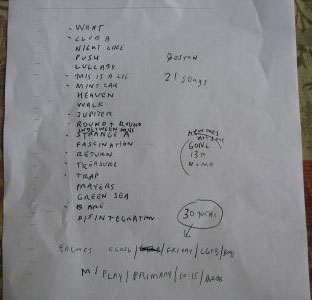 - WANT
- CLUB A
NIGHT LIKE
PUSH
LULLABY
- THIS IS A LIE
- MINT CAR
HEAVEN
WALK
- JUPITER
- ROUND + ROUND
- STRANGE A
FASCINATION
- RETURN
- TREASURE
- TRAP
PRAYERS
GREEN SEA
- BARE
DISINTEGRATION
BOSTON
21 SONGS
GONE
13TH
NUMB
30 TOTAL
CLOSE / FRIDAY / CGTS / BOYS
M / PLAY / PRIMARY / 10:15 /